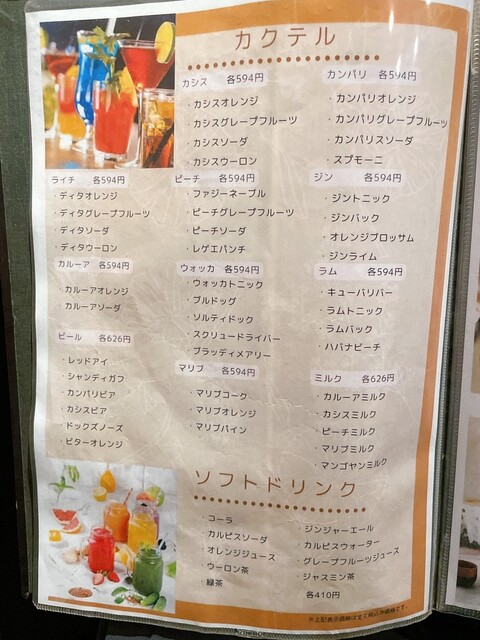 カクテル
カシス 各594円
・カシスオレンジ
・カシスグレープフルーツ
・カシスソーダ
・カシスウーロン
カンパリ 各594円
・カンパリオレンジ
・カンパリグレープフルーツ
・カンパリスソーダ
・スプモーニ
ライチ 各594円
・ディタオレンジ
・ディタグレープフルーツ
・ディタソーダ
・ディタウーロン
ピーチ 各594円
・ファジーネーブル
・ピーチグレープフルーツ
・ピーチソーダ
・レゲエパンチ
ジン 各594円
・ジントニック
・ジンバック
・オレンジブロッサム
・ジンライム
カルーア 各594円
・カルーアオレンジ
・カルーアソーダ
ウォッカ 各594円
・ウォッカトニック
・ブルドッグ
・ソルティドック
・スクリュードライバー
・ブラッディメアリー
ラム 各594円
・キューバリバー
・ラムトニック
・ラムバック
・ハバナピーチ
ビール 各626円
・レッドアイ
・シャンディガフ
・カンパリビア
・カシスビア
・ドックズノーズ
・ビターオレンジ
マリブ 各594円
・マリブコーク
・マリブオレンジ
・マリブパイン
ミルク 各626円
・カルーアミルク
・カシスミルク
・ピーチミルク
・マリブミルク
・マンゴヤンミルク
ソフトドリンク
・コーラ
・カルピスソーダ
・オレンジジュース
・ウーロン茶
・緑茶
・ジンジャーエール
・カルピスウォーター
・グレープフルーツジュース
・ジャスミン茶
各410円
※上記表示価格は全て税込み価格です。